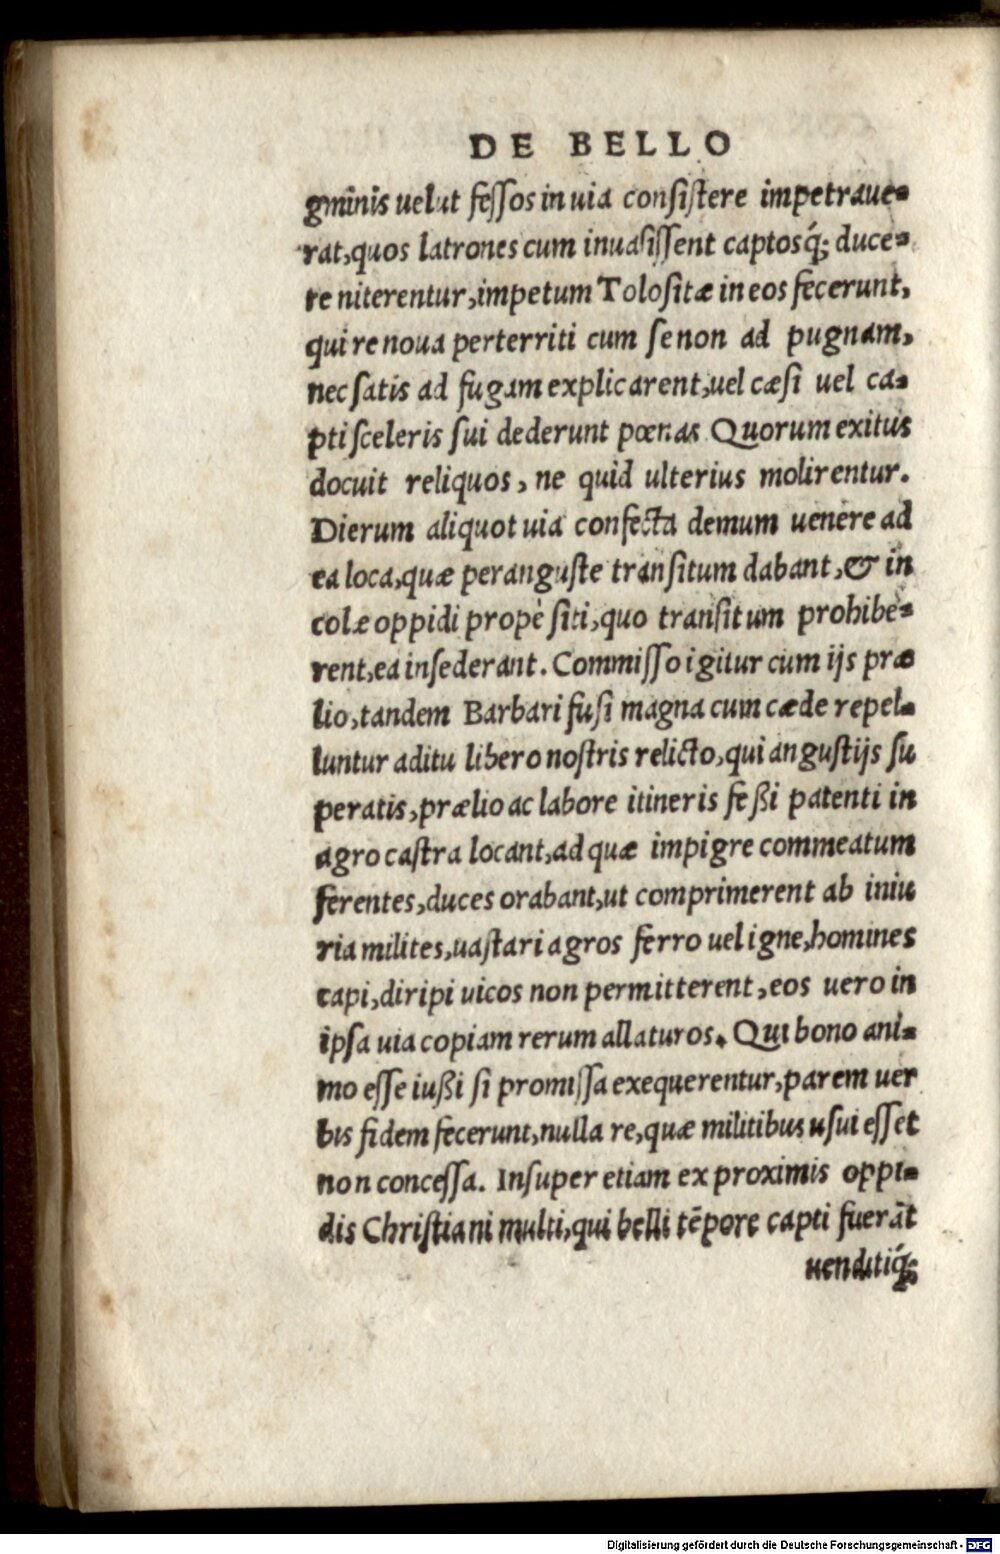 DE BELLO
gminis uelut fessos in uia consistere impetraue-
rat, quos latrones cum inuasissent captosq́; duce-
re niterentur, impetum Tolositæ in eos fecerunt,
qui re noua perterriti cum se non ad pugnam,
nec satis ad fugam explicarent, uel cæsi uel ca-
pti sceleris sui dederunt pœnas Quorum exitus
docuit reliquos, ne quid ulterius molirentur.
Dierum aliquot uia confecta demum uenere ad
ea loca, quæ peranguste transitum dabant, & in
colæ oppidi propè siti, quo transitum prohibe-
rent, ea insederant. Commisso igitur cum ijs præ
lio, tandem Barbari fusi magna cum cæde repel-
luntur aditu libero nostris relicto, qui angustijs su
peratis, prælio ac labore itineris feßi patenti in
agro castra locant, ad quæ impigre commeatum
ferentes, duces orabant, ut comprimerent ab iniu
ria milites, uastari agros ferro uel igne, homines
capi, diripi uicos non permitterent, eos uero in
ipsa uia copiam rerum allaturos. Qui bono ani-
mo esse iußi si promissa exequerentur, parem uer
bis fidem fecerunt, nulla re, quæ militibus usui esset
non concessa. Insuper etiam ex proximis oppi-
dis Christiani multi, qui belli tēpore capti fuerāt
uenditiq́;
Digitalisierung gefördert durch die Deutsche Forschungsgemeinschaft - DFG